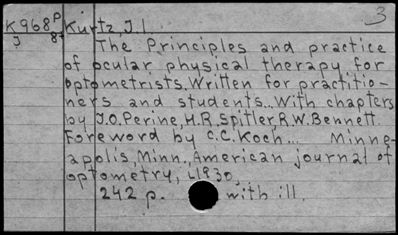 K968p Kurtz, J.I. 3
J 87
The Principles and practice
of ocular physical therapy for
optometrists. Written for practitio-
ners and students. With chapters
by J.O. Perine, H.R. Spitler, R.W. Bennett.
Foreword by C.C. Koch... Minne-
apolis, Minn., American journal of
optometry, c1930.
242 p. with ill.